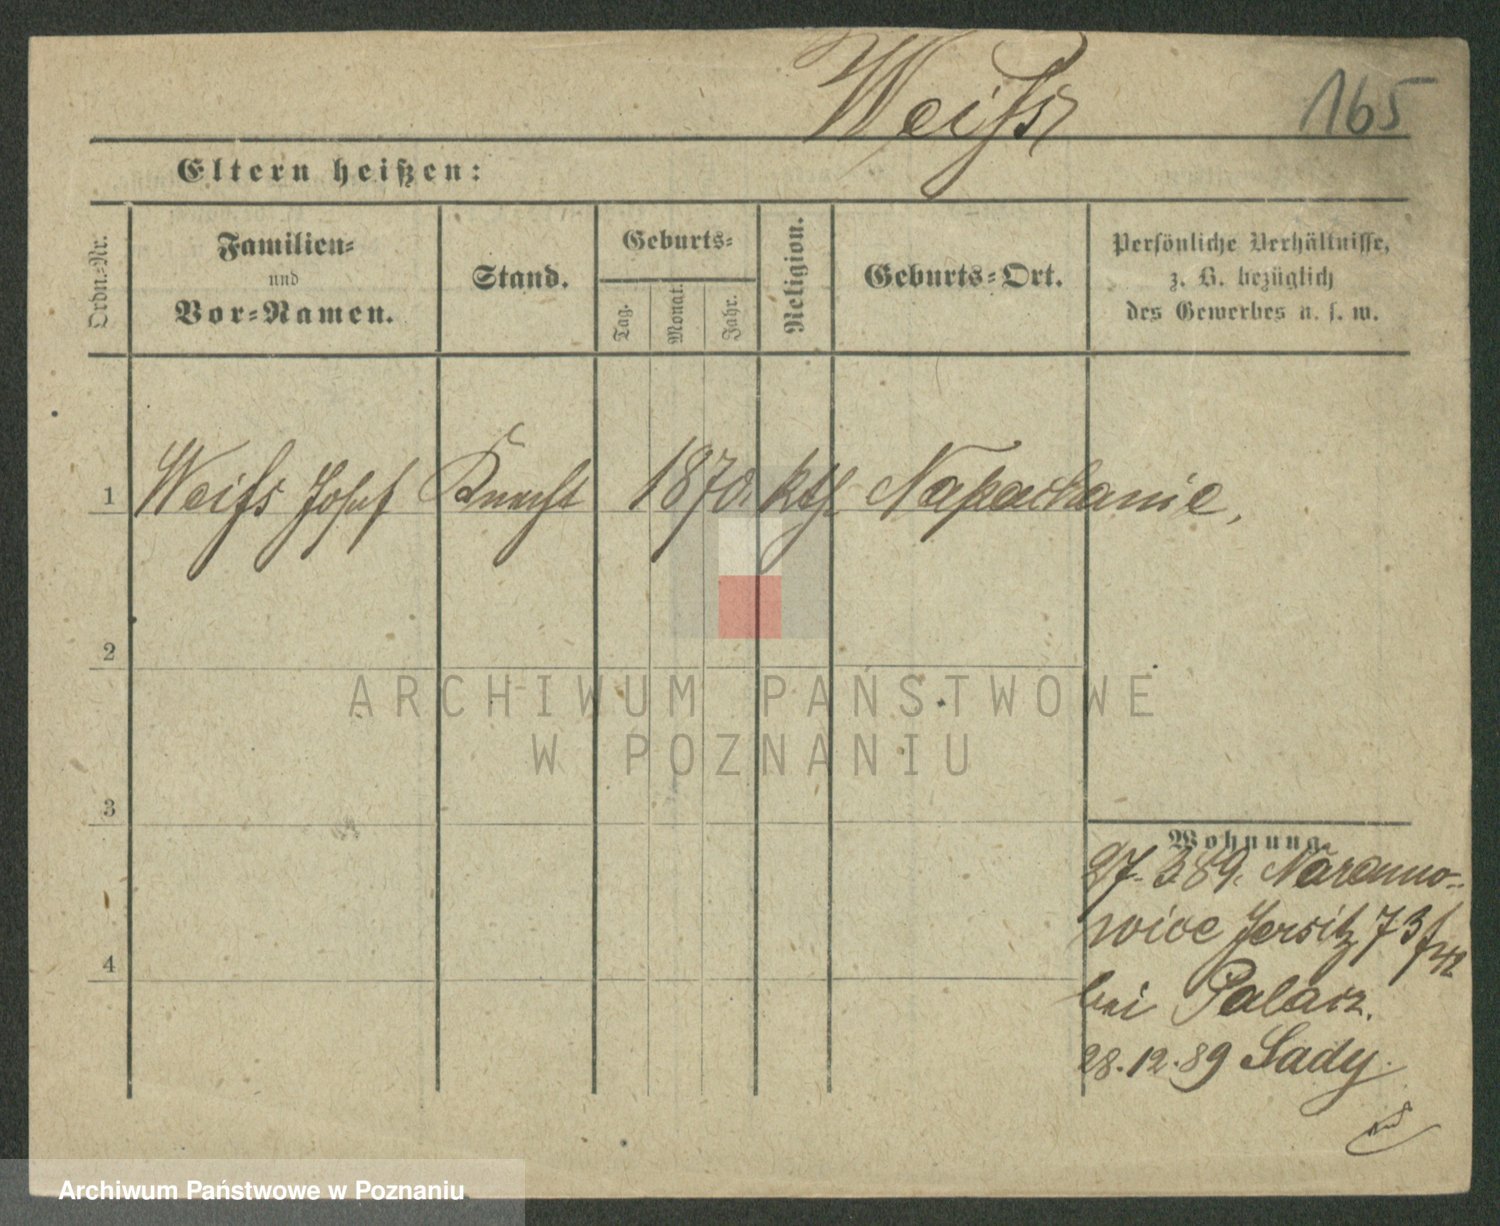 Weiſs
165
Eltern heißen:
Ordn.=Nr.
Familien=
und
Vor=Namen.
Stand.
Geburts=
Tag.
Monat.
Jahr.
Religion.
Geburts=Ort.
Persönliche Verhältnisse,
z. B. bezüglich
des Gewerbes u. s. w.
1 Weiſs Josef Knecht 1870. kth. Napachanie,
2
3
4
Wohnung.
27. 3 89. Naramo-
wice Jersitz 73
bei Palacz.
28.12.89 Sady
ARCHIWUM PAŃSTWOWE
W POZNANIU
Archiwum Państwowe w Poznaniu